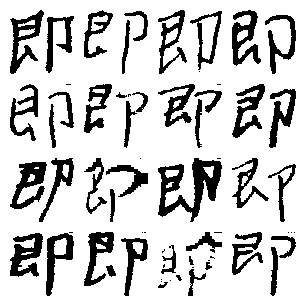 即即即即
即即即即
即即即即
即即即即